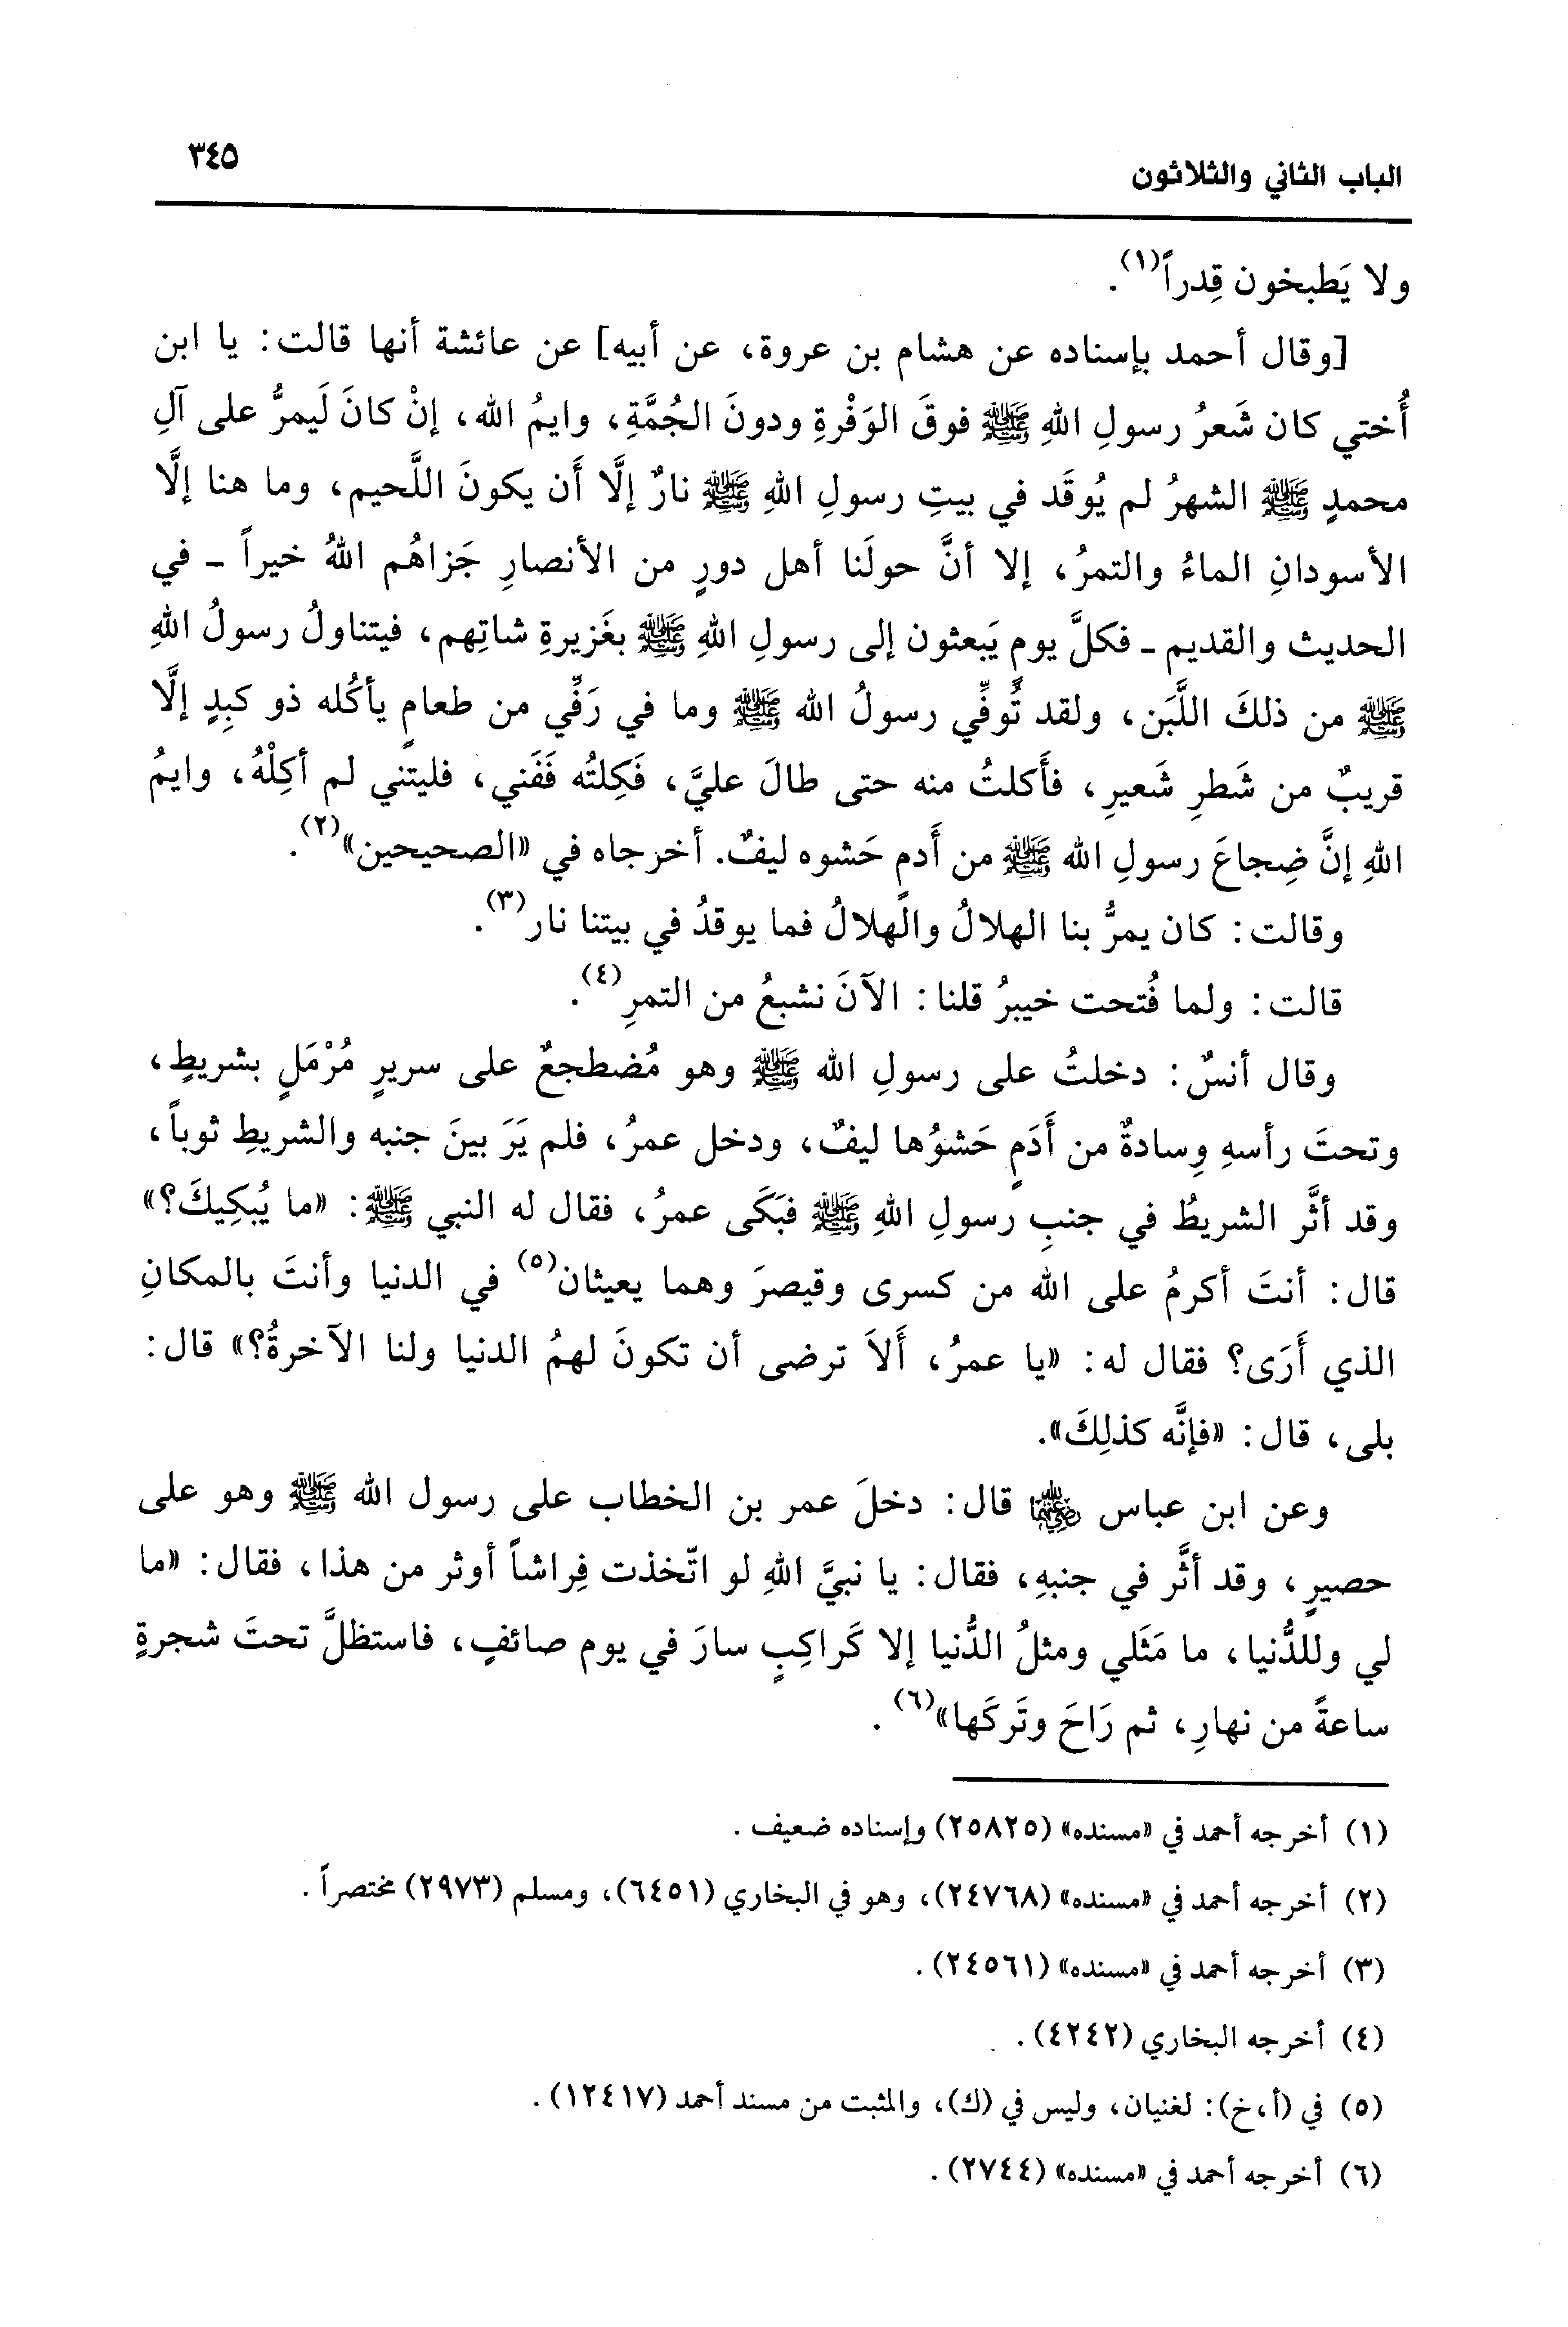 الباب الثاني والثلاثون ٣٤٥
ولا يَطبخون قِدراً(١).
[وقال أحمد بإسناده عن هشام بن عروة، عن أبيه] عن عائشة أنها قالت: يا ابن
أُختي كان شَعرُ رسولِ اللهِ ﷺ فوقَ الوَفْرةِ ودونَ الجُمَّةِ، وايمُ الله، إنْ كانَ لَيمرُّ على آلِ
محمدٍ ﷺ الشهرُ لم يُوقَد في بيتِ رسولِ اللهِ ﷺ نارٌ إلَّا أَن يكونَ اللَّحيم، وما هنا إلَّا
الأسودانِ الماءُ والتمرُ، إلا أنَّ حولَنا أهل دورٍ من الأنصارِ جَزاهُم اللهُ خيراً - في
الحديث والقديم - فكلَّ يومٍ يَبعثون إلى رسولِ اللهِ ﷺ بغَزيرةِ شاتِهم، فيتناولُ رسولُ اللهِ
ﷺ من ذلكَ اللَّبَن، ولقد تُوفِّي رسولُ الله ﷺ وما في رَفِّي من طعامٍ يأكُله ذو كبِدٍ إلَّا
قريبٌ من شَطرِ شَعيرِ، فأَكلتُ منه حتى طالَ عليَّ، فَكِلتُه فَفَني، فليتني لم أكِلْهُ، وايمُ
اللهِ إنَّ ضِجاعَ رسولِ الله ﷺ من أَدمٍ حَشوه ليفٌ. أخرجاه في «الصحيحين»(٢).
وقالت: كان يمرُّ بنا الهلالُ والهلالُ فما يوقدُ في بيتنا نار(٣).
قالت: ولما فُتحت خيبرُ قلنا: الآنَ نشبعُ من التمرِ(٤).
وقال أنسٌ: دخلتُ على رسولِ الله ﷺ وهو مُضطجعٌ على سريرٍ مُرْمَلٍ بشريطٍ،
وتحتَ رأسهِ وِسادةٌ من أَدَمٍ حَشوُها ليفٌ، ودخل عمرُ، فلم يَرَ بينَ جنبه والشريطِ ثوباً،
وقد أثَّر الشريطُ في جنبِ رسولِ اللهِ ﷺ فبَكَى عمرُ، فقال له النبي ﷺ: «ما يُبكِيكَ؟»
قال: أنتَ أكرمُ على الله من كسرى وقيصرَ وهما يعيثان(٥) في الدنيا وأنتَ بالمكانِ
الذي أَرَى؟ فقال له: «يا عمرُ، أَلاَ ترضى أن تكونَ لهمُ الدنيا ولنا الآخرةُ؟» قال:
بلى، قال: «فإنَّه كذلِكَ».
وعن ابن عباس ﵄ قال: دخلَ عمر بن الخطاب على رسول الله ﷺ وهو على
حصيرٍ، وقد أثَّر في جنبهِ، فقال: يا نبيَّ اللهِ لو اتّخذت فِراشاً أوثر من هذا، فقال: «ما
لي وللدُّنيا، ما مَثَلي ومثلُ الدُّنيا إلا كَراكِبٍ سارَ في يوم صائفٍ، فاستظلَّ تحتَ شجرةٍ
ساعةً من نهارِ، ثم رَاحَ وتَركَها»(٦).
(١) أخرجه أحمد في «مسنده» (٢٥٨٢٥) وإسناده ضعيف.
(٢) أخرجه أحمد في «مسنده» (٢٤٧٦٨)، وهو في البخاري (٦٤٥١)، ومسلم (٢٩٧٣) مختصراً.
(٣) أخرجه أحمد في «مسنده» (٢٤٥٦١).
(٤) أخرجه البخاري (٤٢٤٢).
(٥) في (أ،خ): لغنيان، وليس في (ك)، والمثبت من مسند أحمد (١٢٤١٧).
(٦) أخرجه أحمد في «مسنده» (٢٧٤٤).